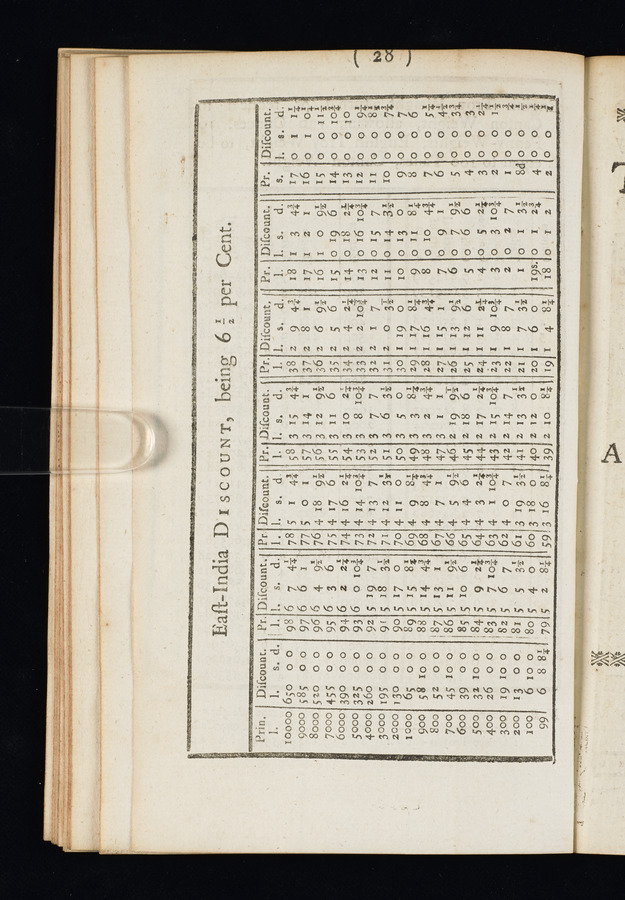 ( 28 )
Eaſt-India DISCOUNT, being 6 ½ per Cent.
Prin. Diſcount. Pr. Diſcount. Pr Diſcount. Pr. Diſcount. Pr. Diſcount. Pr. Diſcount. Pr. Diſcount.
l. l. s. d. l. l. s. d. l. l. s. d l. l. s. d. l. l. s. d. l. l. s. d. s. l. s. d.
10000 650 0 0 98 6 7 4¼ 78 5 1 4¾ 58 3 15 4¾ 38 2 9 4¾ 18 1 3 4¾ 17 0 1 1¼
9000 585 0 0 97 6 6 1 77 5 0 1 57 3 14 1 37 2 8 1 17 1 2 1 16 0 1 0¼
8000 520 0 0 96 6 4 9½ 76 4 18 9½ 56 3 12 9½ 36 2 6 9½ 16 1 0 9½ 15 0 0 11½
7000 455 0 0 95 6 3 6 75 4 17 6 55 3 11 6 35 2 5 6 15 0 19 6 14 0 0 10¾
6000 390 0 0 94 6 2 2¼ 74 4 16 2¼ 54 3 10 2¼ 34 2 4 2¼ 14 0 18 2¼ 13 0 0 10
5000 325 0 0 93 6 0 10¾ 73 4 14 10¾ 53 3 8 10¾ 33 2 2 10¾ 13 0 16 10¾ 12 0 0 9¼
4000 260 0 0 92 5 19 7 72 4 13 7 52 3 7 7 32 2 1 7 12 0 15 7 11 0 0 8½
3000 195 0 0 91 5 18 3½ 71 4 12 3½ 51 3 6 3½ 31 2 0 3½ 11 0 14 3½ 10 0 0 7¾
2000 130 0 0 90 5 17 0 70 4 11 0 50 3 5 0 30 1 19 0 10 0 13 0 9 0 0 7
1000 65 0 0 89 5 15 8¼ 69 4 9 8¼ 49 3 3 8¼ 29 1 17 8¼ 9 0 11 8¼ 8 0 0 6
900 58 10 0 88 5 14 4¾ 68 4 8 4¾ 48 3 2 4¾ 28 1 16 4¾ 8 0 10 4¾ 7 0 0 5¼
800 52 0 0 87 5 13 1 67 4 7 1 47 3 1 1 27 1 15 1 7 0 9 1 6 0 0 4½
700 45 10 0 86 5 11 9½ 66 4 5 9½ 46 2 19 9½ 26 1 13 9½ 6 0 7 9½ 5 0 0 3¾
600 39 0 0 85 5 10 6 65 4 4 6 45 2 18 6 25 1 12 6 5 0 6 6 4 0 0 3
500 32 10 0 84 5 9 2¼ 64 4 3 2¼ 44 2 17 2¼ 24 1 11 2¼ 4 0 5 2¼ 3 0 0 2¼
400 26 0 0 83 5 7 10¾ 63 4 1 10¾ 43 2 15 10¾ 23 1 9 10¾ 3 0 3 10¾ 2 0 0 1½
300 19 10 0 82 5 6 7 62 4 0 7 42 2 14 7 22 1 8 7 2 0 2 7 1 0 0 ¾
200 13 0 0 81 5 5 3½ 61 3 19 3½ 41 2 13 3½ 21 1 7 3½ 1 0 1 3½ 8d 0 0 ½
100 6 10 0 80 5 4 0 60 3 18 0 40 2 12 0 20 1 6 0 19s. 0 1 2¾ 4 0 0
99 6 8 8¼ 79 5 2 8¼ 59 3 16 8¼ 39 2 10 8¼ 19 1 4 8¼ 18 0 1 2 2 0 0
A